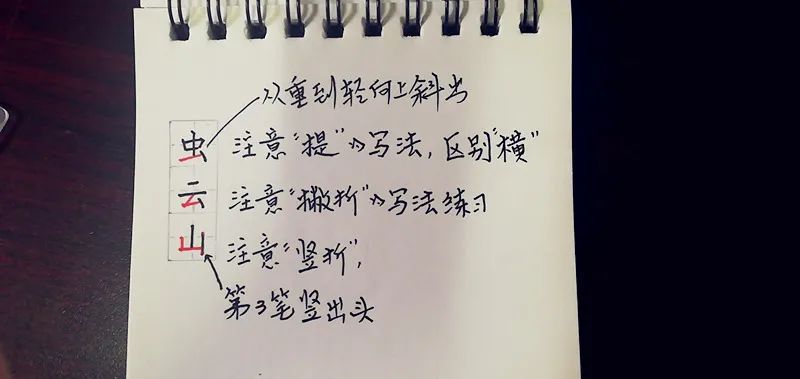 从重到轻向上斜出
虫 注意“提”的写法，区别“横”
云 注意“撇折”的写法练习
山 注意“竖折”，
第3笔竖出头